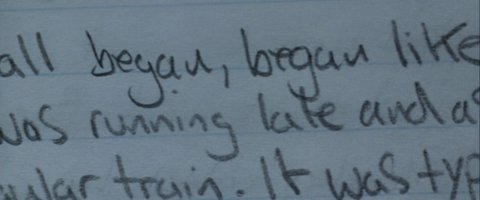 all began, began like
was running late and a
ular train. It was typ